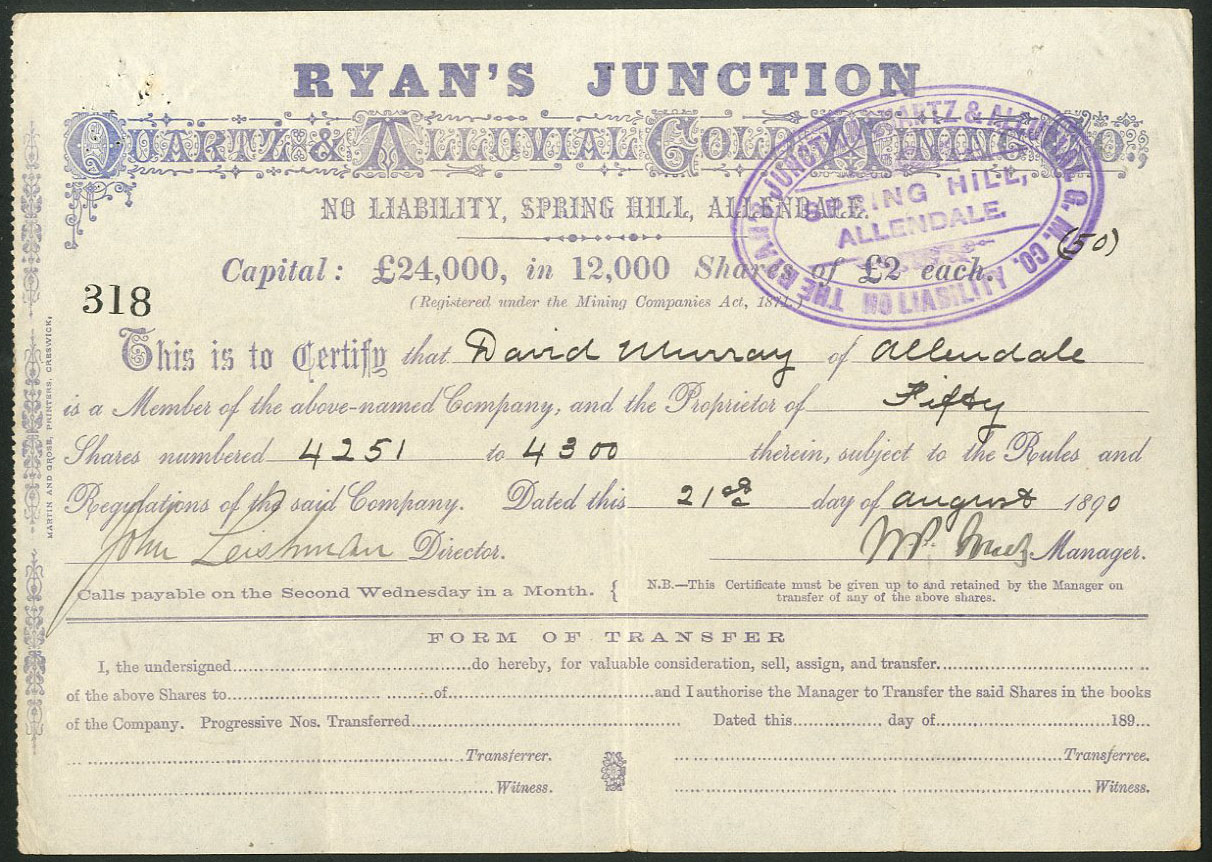 RYAN'S JUNCTION
QUARTZ & ALLUVIAL GOLD MINING CO.,
NO LIABILITY, SPRING HILL, ALLENDALE.
THE RYAN'S JUNCTION QUARTZ & ALLUVIAL G. M. CO. NO LIABILITY
SPRING HILL,
ALLENDALE.
(50)
Capital: £24,000, in 12,000 Shares of £2 each.
(Registered under the Mining Companies Act, 1871.)
318
This is to Certify that David Murray of Allendale
is a Member of the above-named Company, and the Proprietor of Fifty
Shares numbered 4251 to 4300 therein, subject to the Rules and
Regulations of the said Company. Dated this 21st day of August 1890
John Leishman Director. Manager.
Calls payable on the Second Wednesday in a Month. { N.B.—This Certificate must be given up to and retained by the Manager on
transfer of any of the above shares.
FORM OF TRANSFER
I, the undersigned do hereby, for valuable consideration, sell, assign, and transfer
of the above Shares to of and I authorise the Manager to Transfer the said Shares in the books
of the Company. Progressive Nos. Transferred Dated this day of 189
Transferrer. Transferree.
Witness. Witness.
MARTIN AND GROSE, PRINTERS, CRESWICK.